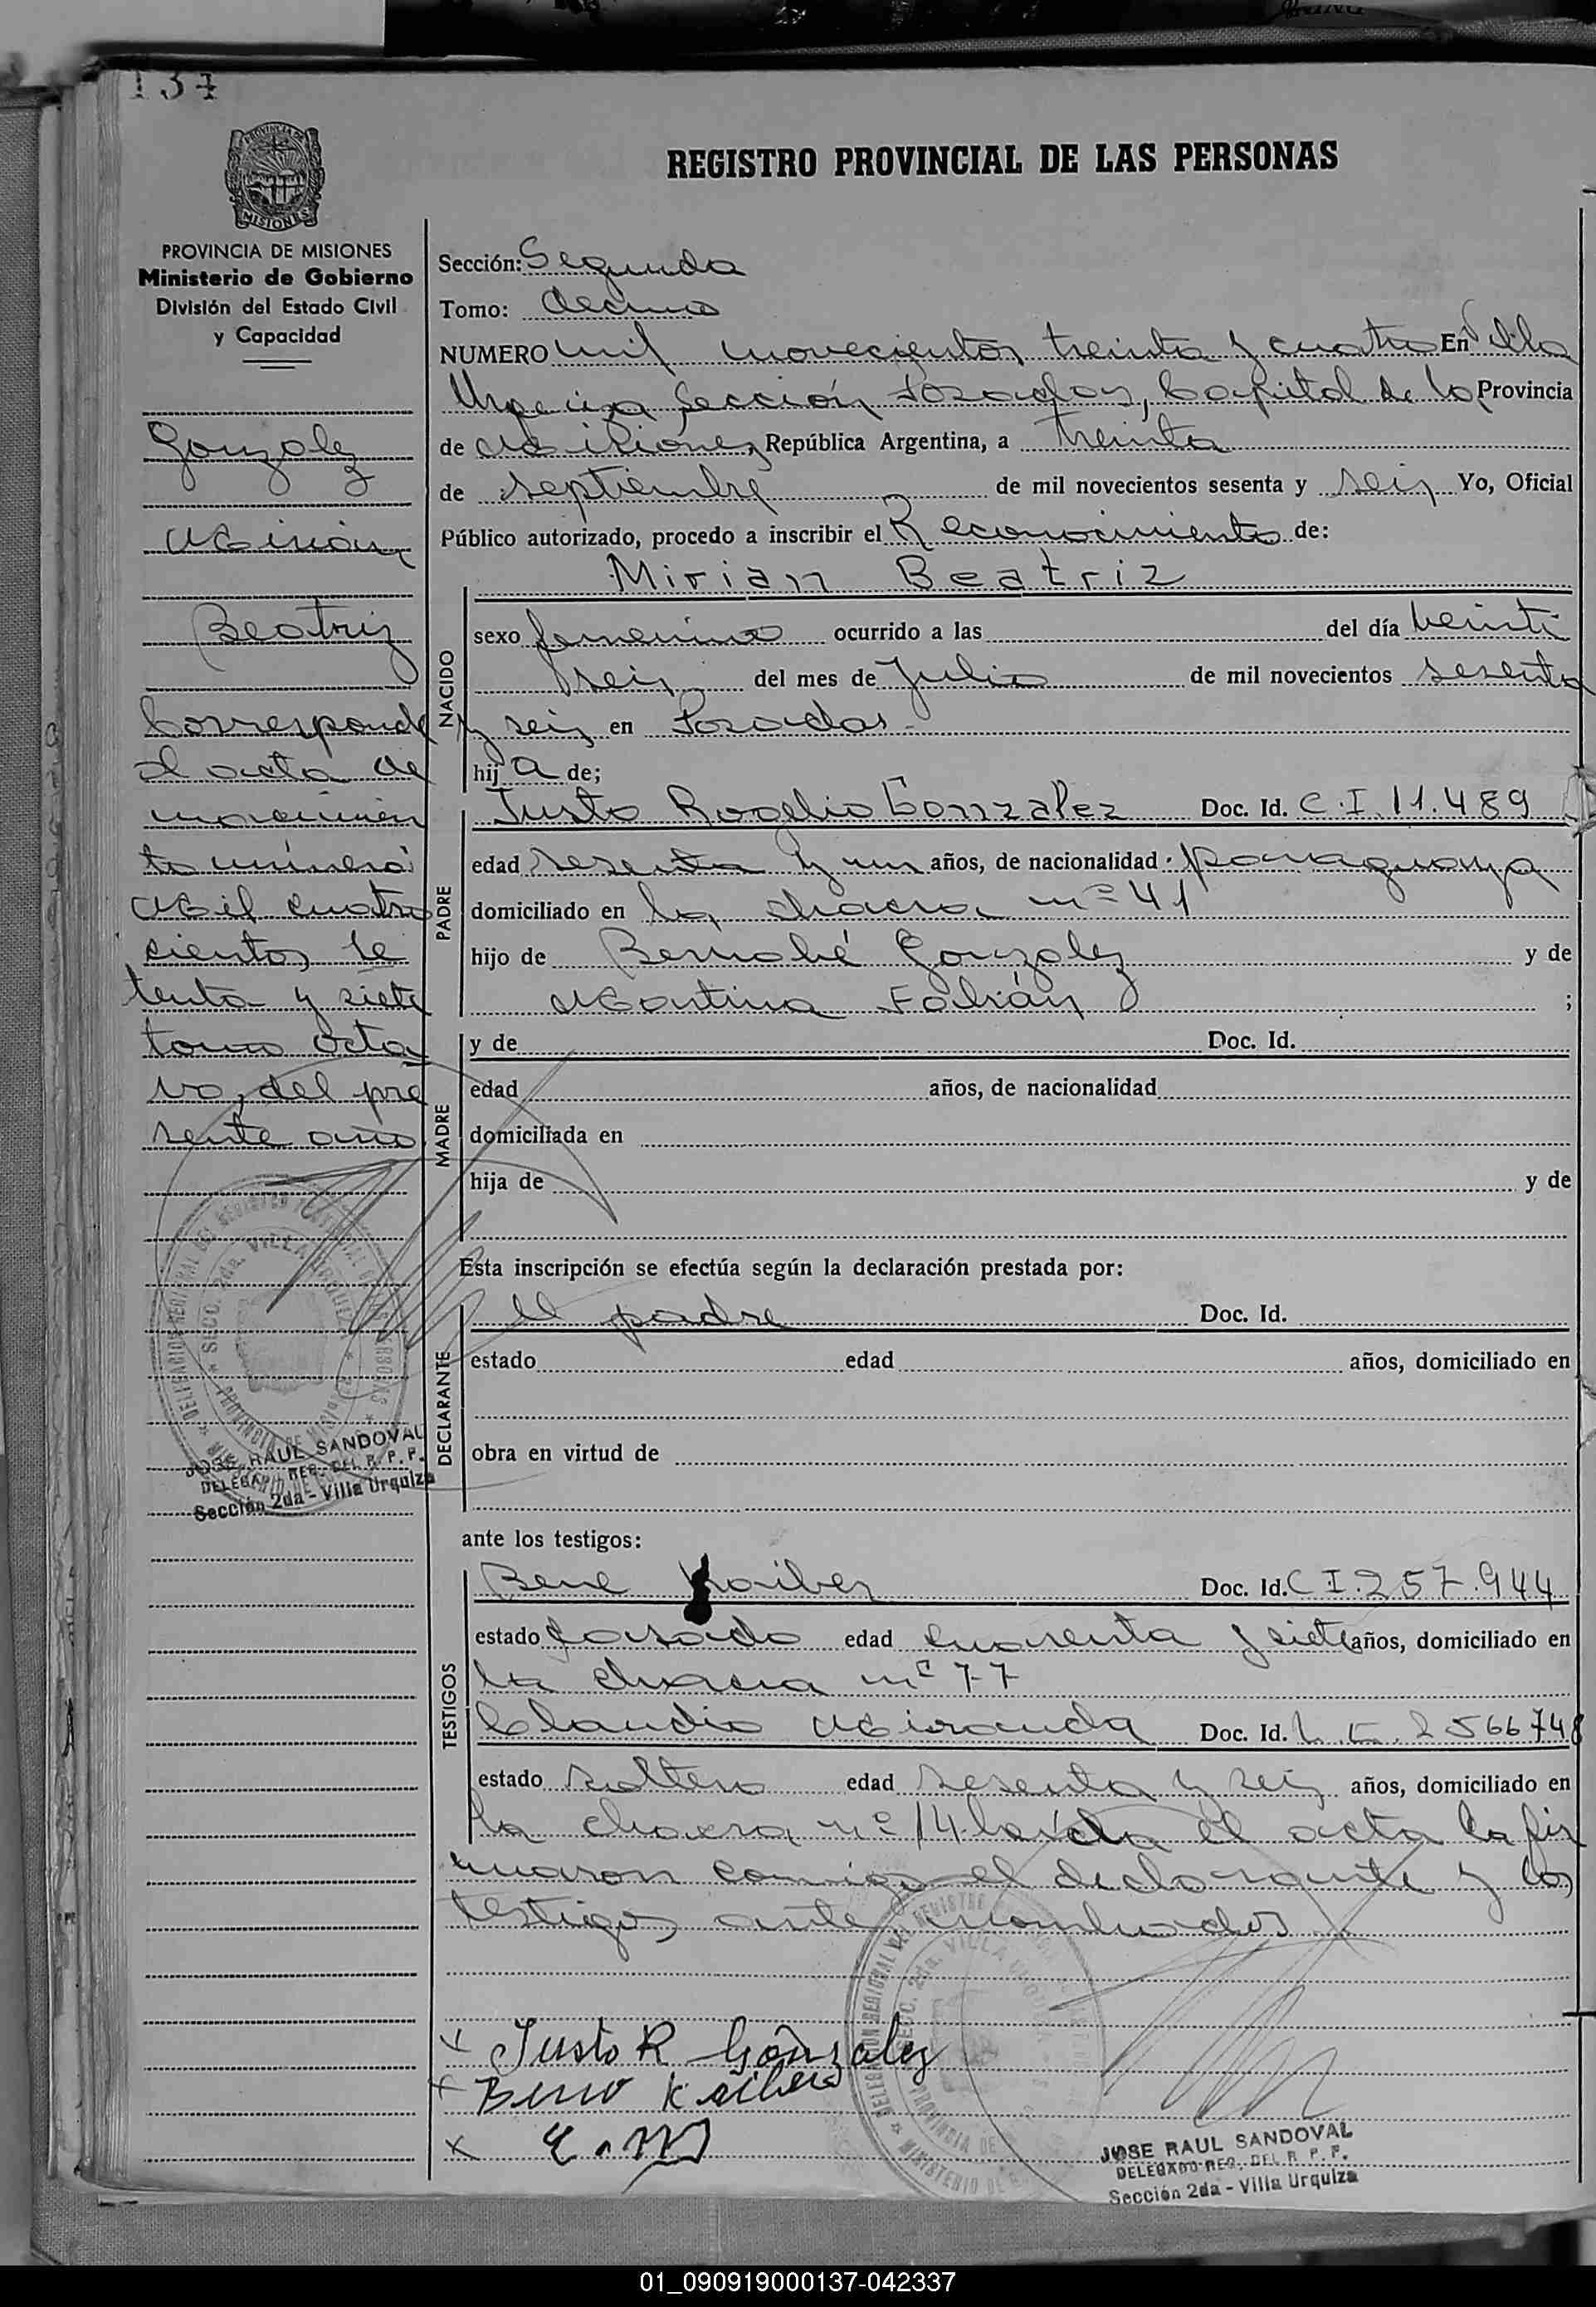 134
PROVINCIA DE MISIONES
Ministerio de Gobierno
División del Estado Civil
y Capacidad
Gonzalez
Mirian
Beatriz
Corresponde
al acta de
nacimien
to número
Mil cuatro
cientos se
tenta y siete
tomo octa
vo, del pre
sente año
JOSE RAUL SANDOVAL
DELEGADO REG. DEL R. P. P.
Sección 2da - Villa Urquiza
REGISTRO PROVINCIAL DE LAS PERSONAS
Sección: Segunda
Tomo: decimo
NUMERO mil novecientos treinta y cuatro En Villa
Urquiza Sección Posadas, Capital de la Provincia
de Misiones, República Argentina, a treinta
de septiembre de mil novecientos sesenta y seis Yo, Oficial
Público autorizado, procedo a inscribir el Reconocimiento de:
Mirian Beatriz
NACIDO
sexo femenino ocurrido a las del día veinti
seis del mes de Julio de mil novecientos sesenta
y seis en Posadas.-
hija de;
PADRE
Justo Rogelio Gonzalez Doc. Id. C.I. 11.489
edad sesenta y un años, de nacionalidad paraguaya
domiciliado en la chacra nº 41
hijo de Bernabé Gonzalez y de
Martina Fabián ;
MADRE
y de Doc. Id.
edad años, de nacionalidad
domiciliada en
hija de y de
Esta inscripción se efectúa según la declaración prestada por:
DECLARANTE
el padre Doc. Id.
estado edad años, domiciliado en
obra en virtud de
ante los testigos:
TESTIGOS
Bene Kaiber Doc. Id. C I. 257.944
estado casado edad cuarenta y siete años, domiciliado en
la chacra nº 77
Claudio Miranda Doc. Id. L. E. 2566748
estado soltero edad sesenta y seis años, domiciliado en
la chacra nº 14 leída el acta la fir
maron conmigo el declarante y los
testigos ante nombrados
Justo R Gonzalez
Beno Kaiber
JOSE RAUL SANDOVAL
DELEGADO REG. DEL R. P. P.
Sección 2da - Villa Urquiza
01_090919000137-042337